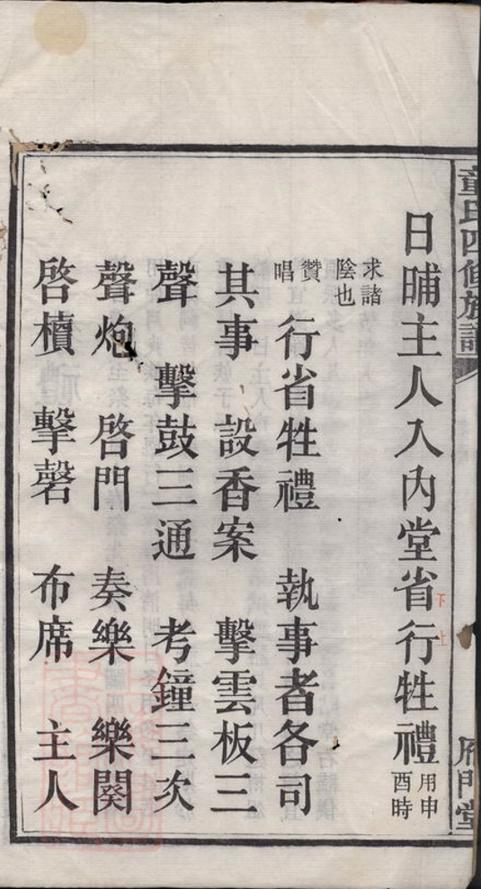 童氏四修族譜
雁門堂
日晡主人入內堂省行牲禮 用申酉時
下上
求諸陰也
贊唱 行省牲禮 執事者各司
其事 設香案 擊雲板三
聲 擊鼓三通 考鐘三次
聲炮 啓門 奏樂 樂闋
啓櫝 擊磬 布席 主人